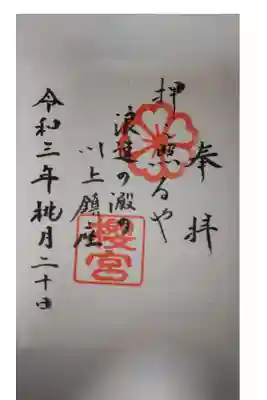 奉拝
押照るや
浪速の澱の
川上鎮座
櫻宮
令和三年桃月二十日